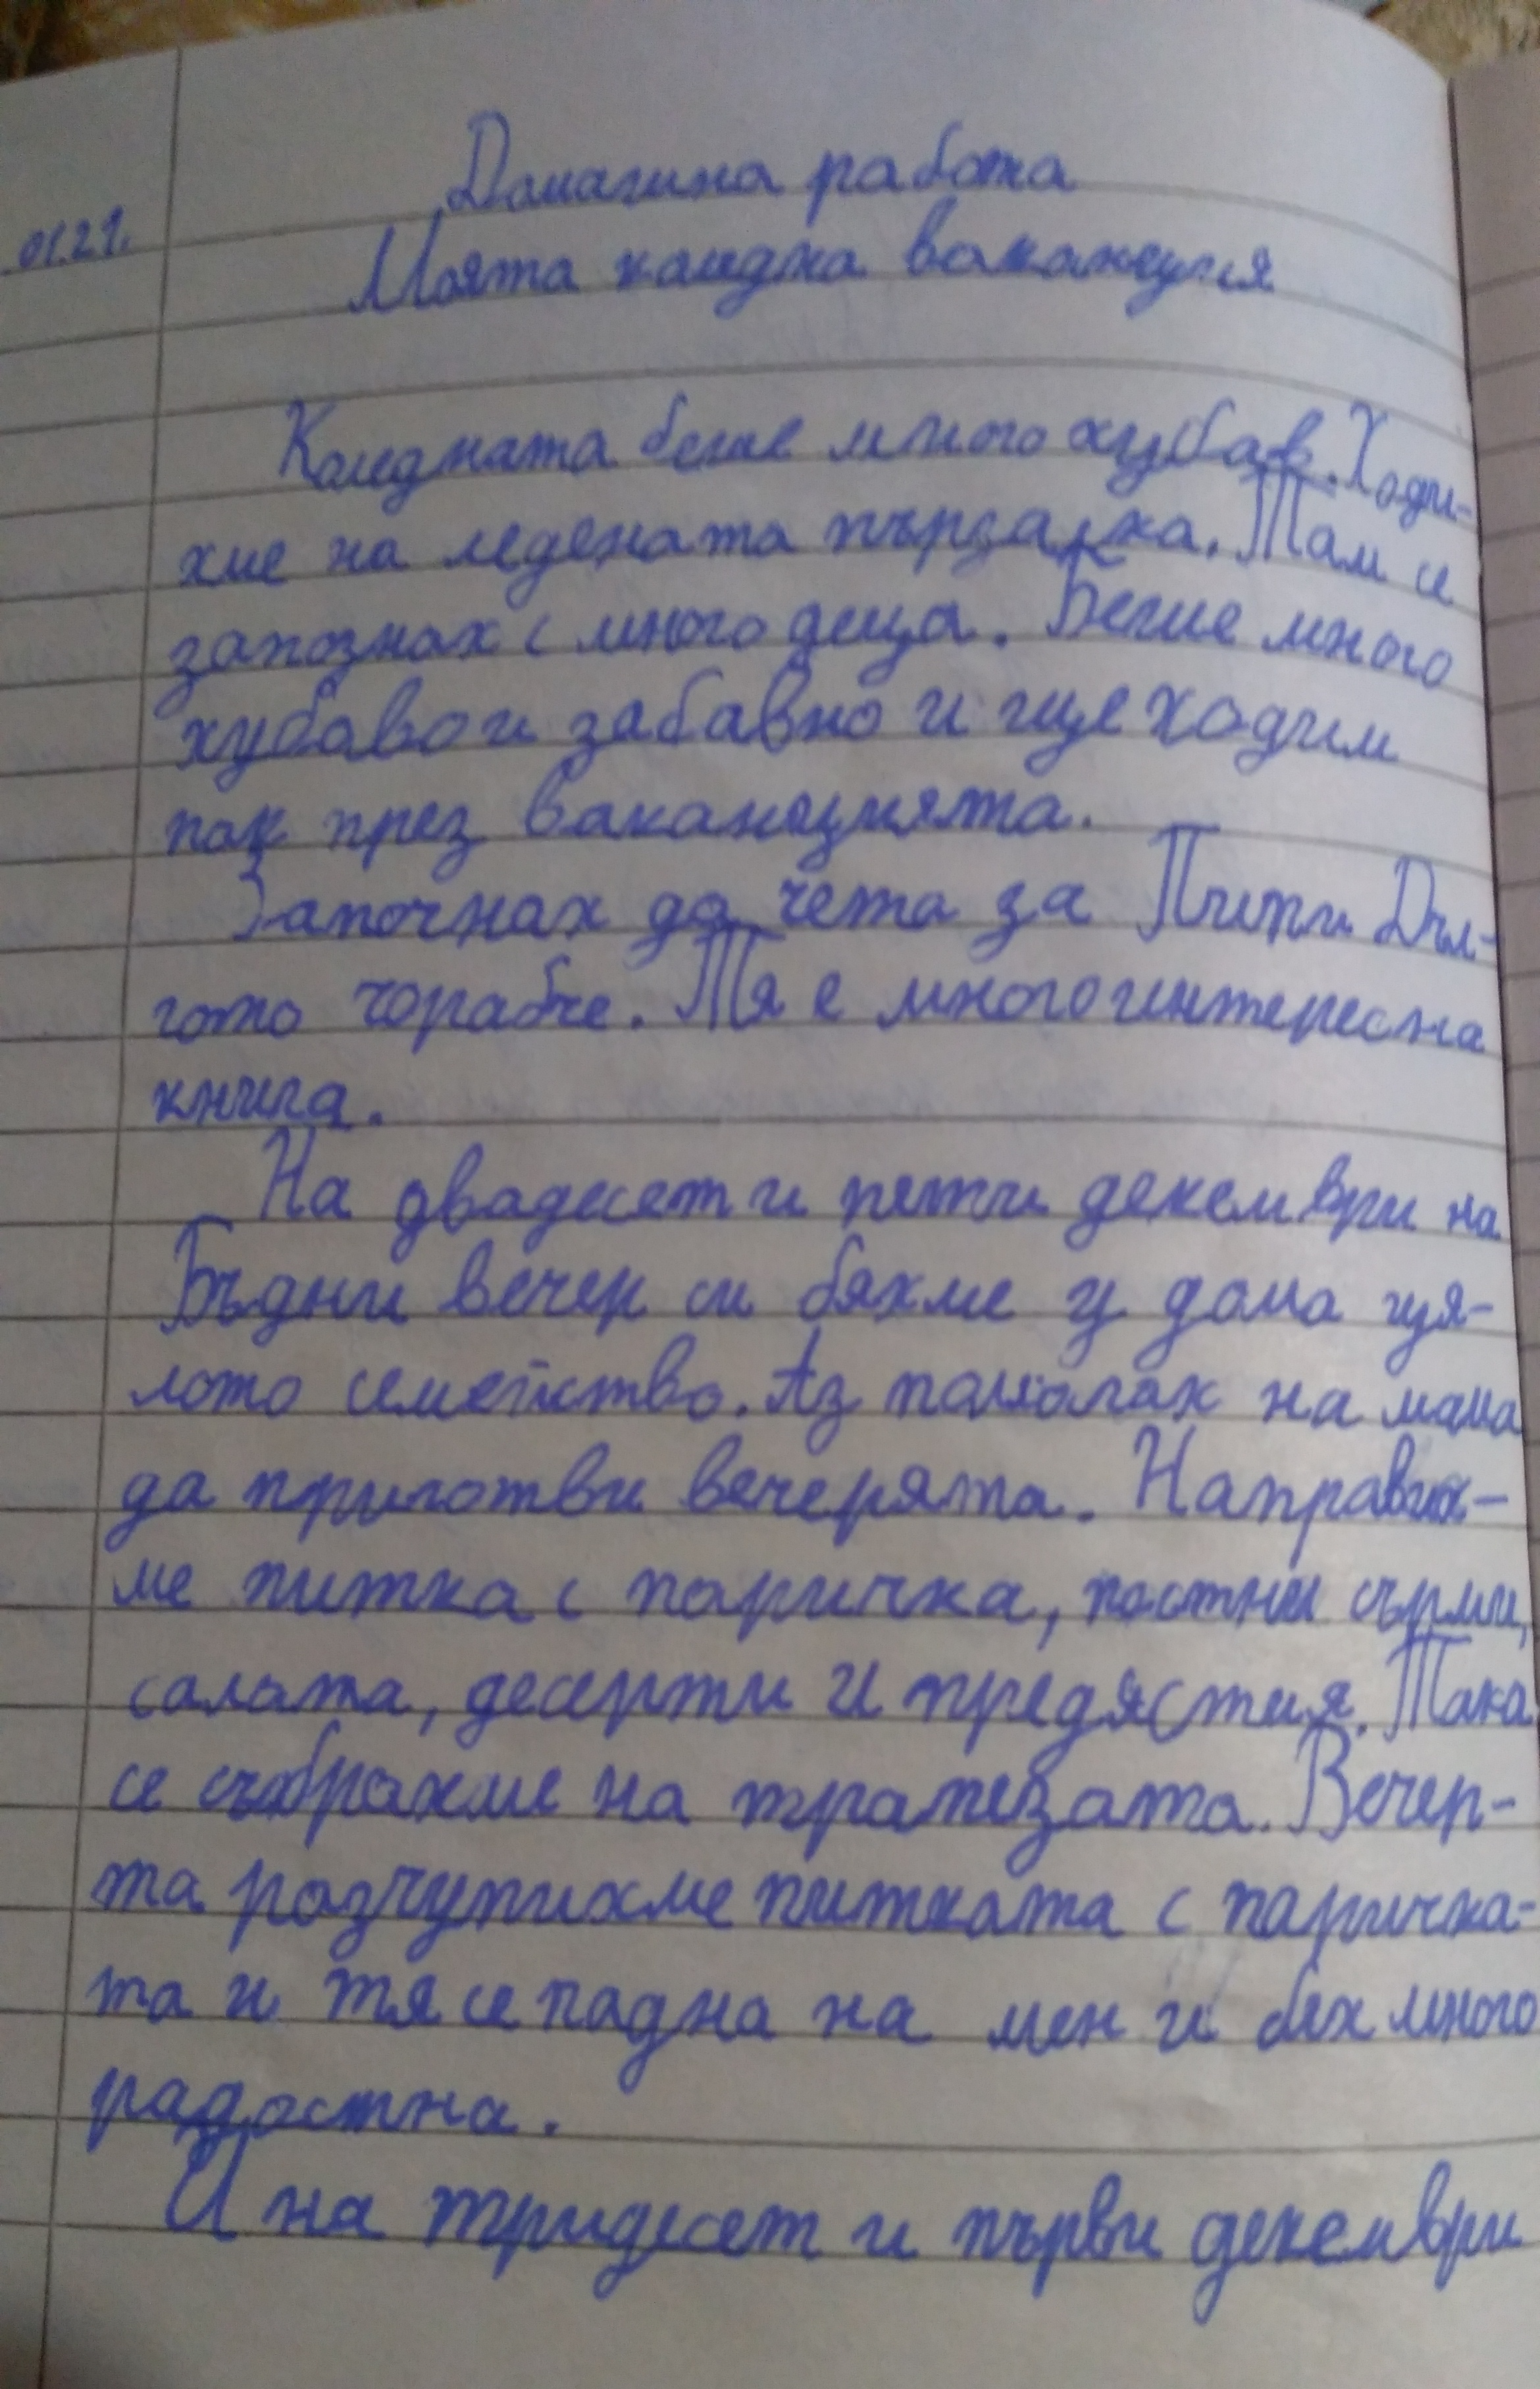 Домашна работа
01.21.
Моята коледна ваканция
Коледната беше много хубав. Ходи-
хме на ледената пързалка. Там се
запознах с много деца. Беше много
хубаво и забавно и ще ходим
пак през ваканцията.
Започнах да чета за Пипи Дъл-
гото чорапче. Тя е много интересна
книга.
На двадесет и пети декември на
Бъдни вечер си бяхме у дома ця-
лото семейство. Аз помагах на мама
да приготви вечерята. Направих-
ме питка с паричка, постни сърми,
салата, десерти и предястия. Така
се събрахме на трапезата. Вечер-
та разчупихме питката с паричка-
та и тя се падна на мен и бях много
радостна.
И на тридесет и първи декември